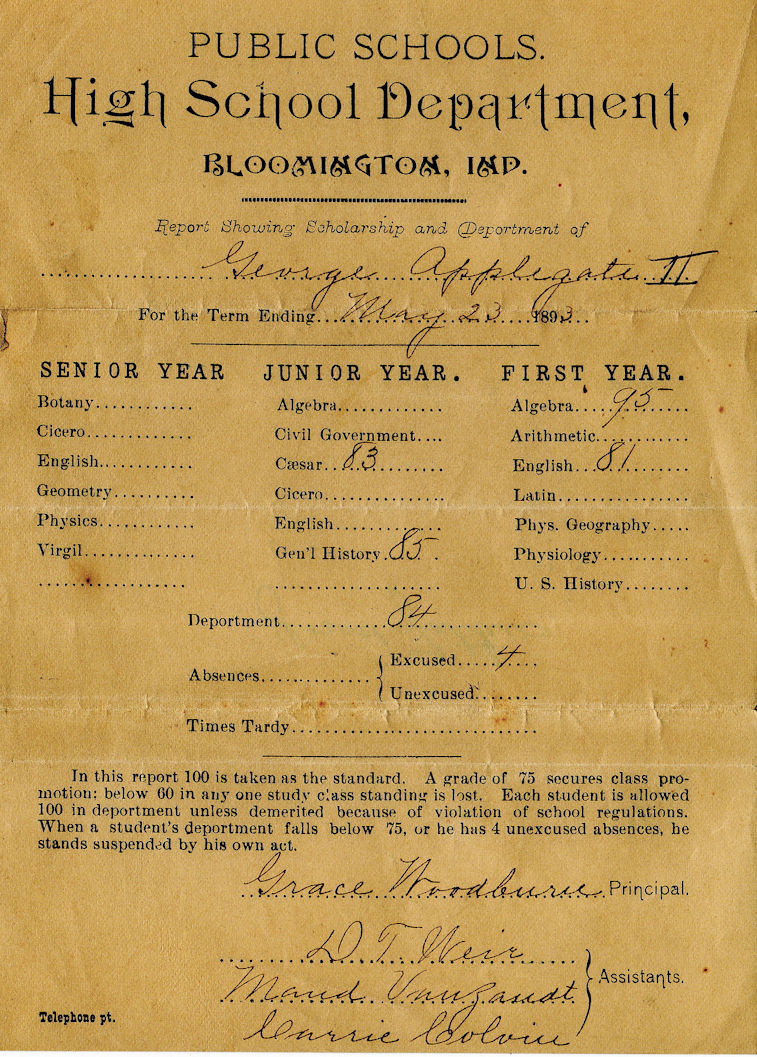 PUBLIC SCHOOLS.
High School Department,
BLOOMINGTON, IND.
Report Showing Scholarship and Department of
George Applegate II
For the Term Ending May 23 1893
SENIOR YEAR JUNIOR YEAR. FIRST YEAR.
Botany Algebra Algebra 95
Cicero Civil Government Arithmetic
English Cæsar 83 English 81
Geometry Cicero Latin
Physics English Phys. Geography
Virgil Gen'l History 85 Physiology
U. S. History
Department 84
Absences Excused 4
Unexcused
Times Tardy
In this report 100 is taken as the standard. A grade of 75 secures class pro-
motion: below 60 in any one study class standing is lost. Each student is allowed
100 in department unless demerited because of violation of school regulations.
When a student's deportment falls below 75, or he has 4 unexcused absences, he
stands suspended by his own act.
Grace Woodburn Principal.
D T Weir
Maud Vanzandt Assistants.
Carrie Colvin
Telephone pt.